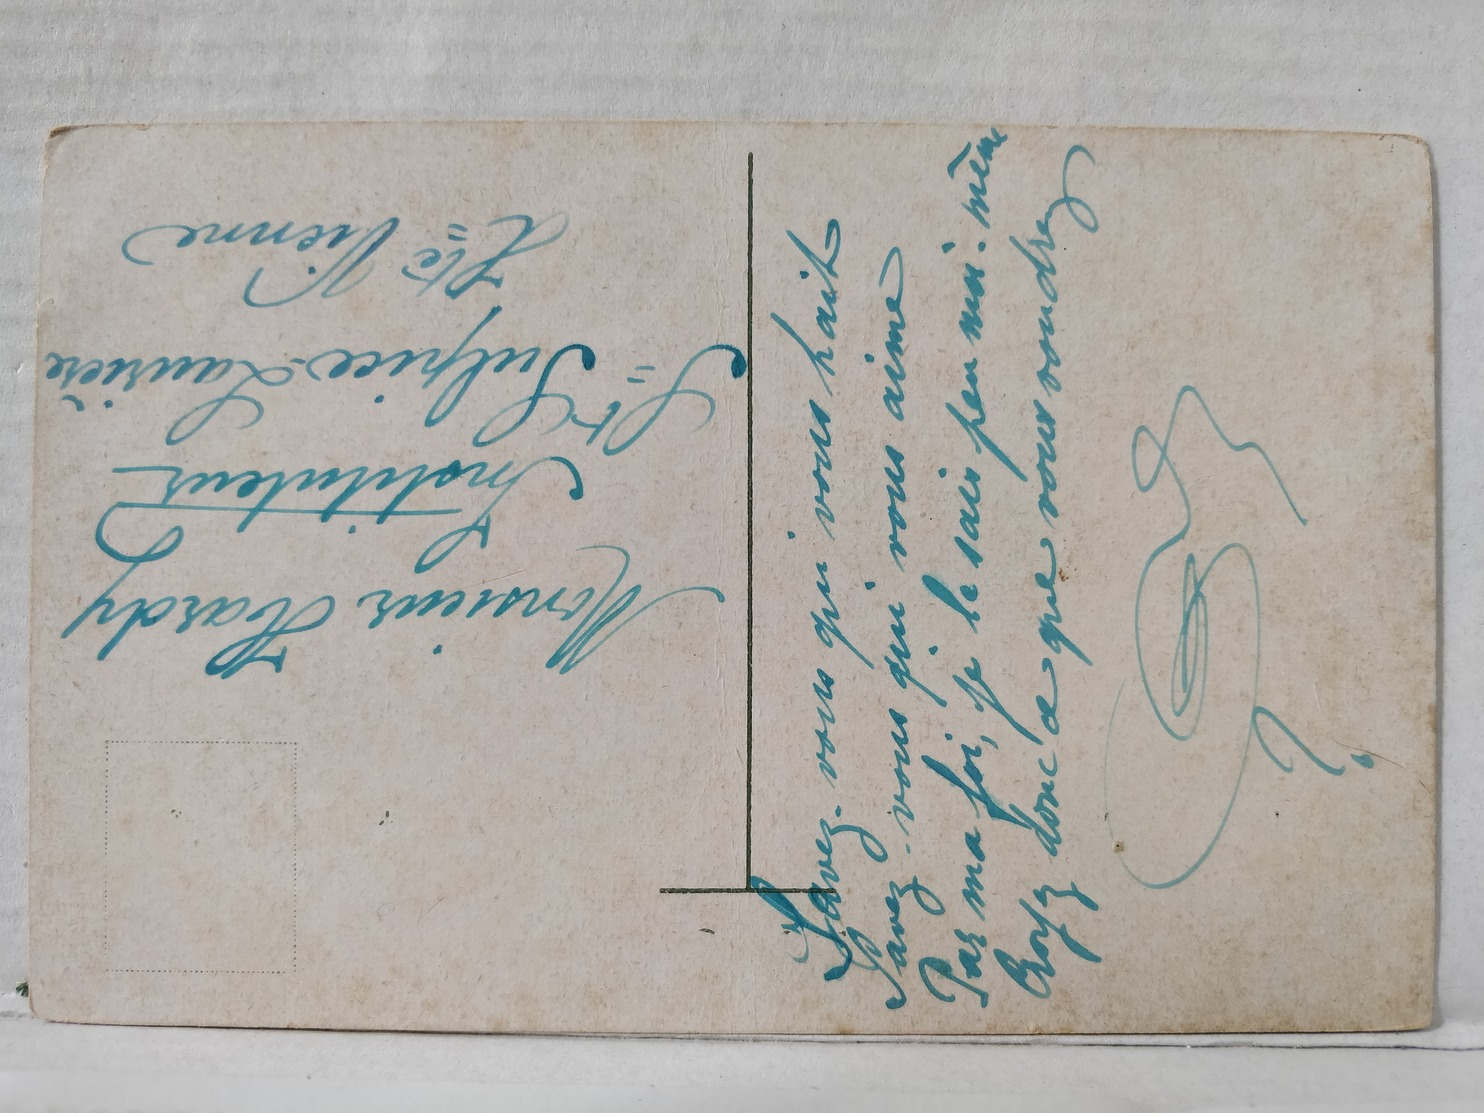 Savez-vous qui vous hait
Savez-vous qui vous aime
Par ma foi, je le sais peu moi-même
Croyez donc ce que vous voudrez
Monsieur Hardy
Instituteur
St Sulpice-Laurière
Hte Vienne